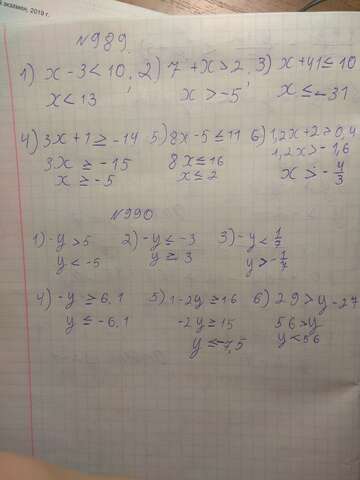 й экзамен, 2019 г.
№989.
1) x - 3 < 10, 2) 7 + x > 2, 3) x + 41 ≤ 10
x < 13 x > -5 x ≤ -31
4) 3x + 1 ≥ -14 5) 8x - 5 ≤ 11 6) 1,2x + 2 > 0,4
3x ≥ -15 8x ≤ 16 1,2x > -1,6
x ≥ -5 x ≤ 2 x > -4/3
№990
1) -y > 5 2) -y ≤ -3 3) -y < 1/7
y < -5 y ≥ 3 y > -1/7
4) -y ≥ 6,1 5) 1 - 2y ≥ 16 6) 29 > y - 27
y ≤ -6,1 -2y ≥ 15 56 > y
y ≤ -7,5 y < 56